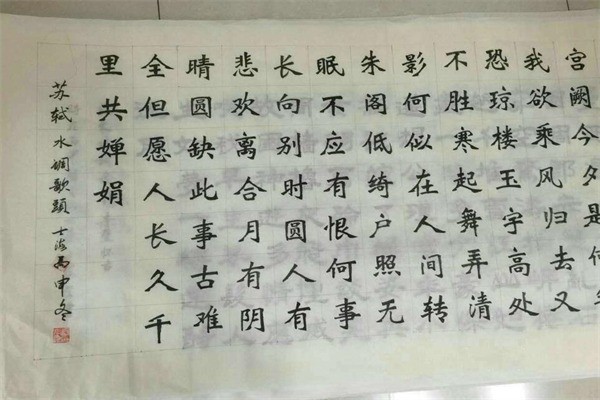 宫阙今夕是何
我欲乘风归去又
恐琼楼玉宇高处
不胜寒起舞弄清
影何似在人间转
朱阁低绮户照无
眠不应有恨何事
长向别时圆人有
悲欢离合月有阴
晴圆缺此事古难
全但愿人长久千
里共婵娟
苏轼水调歌頭 丙申冬